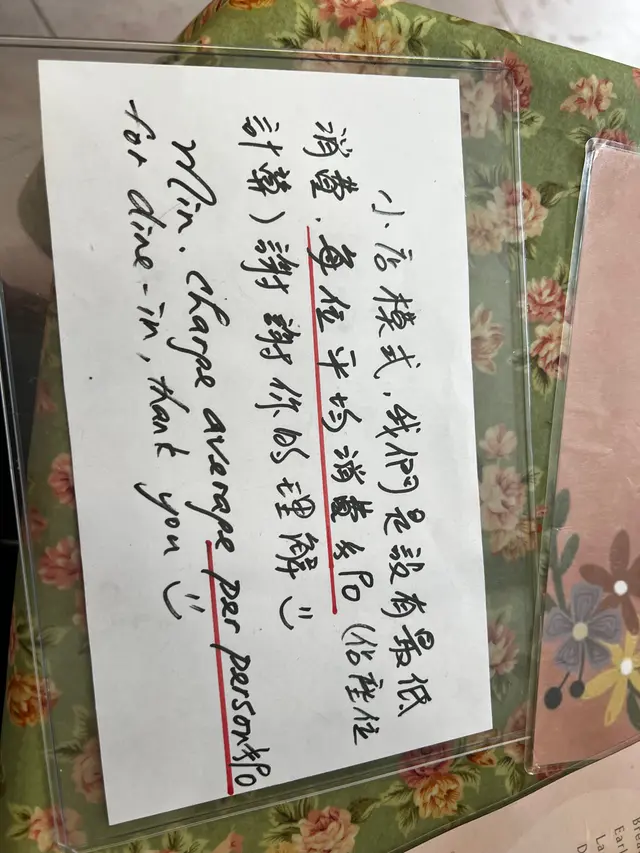 小店模式,我們是設有最低
消費.每位平均消費$90 (佔座位
計算) 謝謝你的理解 :)
Min. charge average per person $90
for dine-in, thank you :)